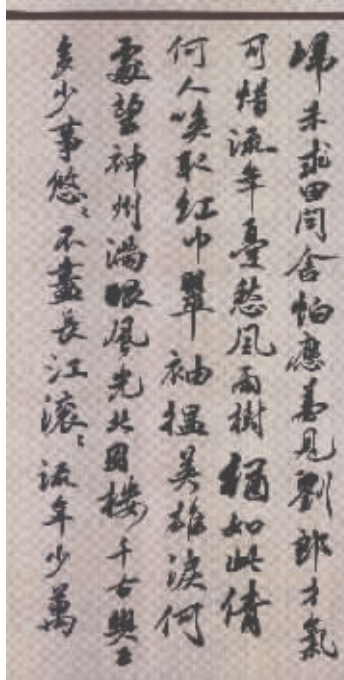 歸未求田問舍怕應羞見劉郎才氣
可惜流年憂愁風雨樹猶如此倩
何人喚取紅巾翠袖揾英雄淚何
處望神州滿眼風光北固樓千古興亡
多少事悠〻不盡長江滾〻流年少萬